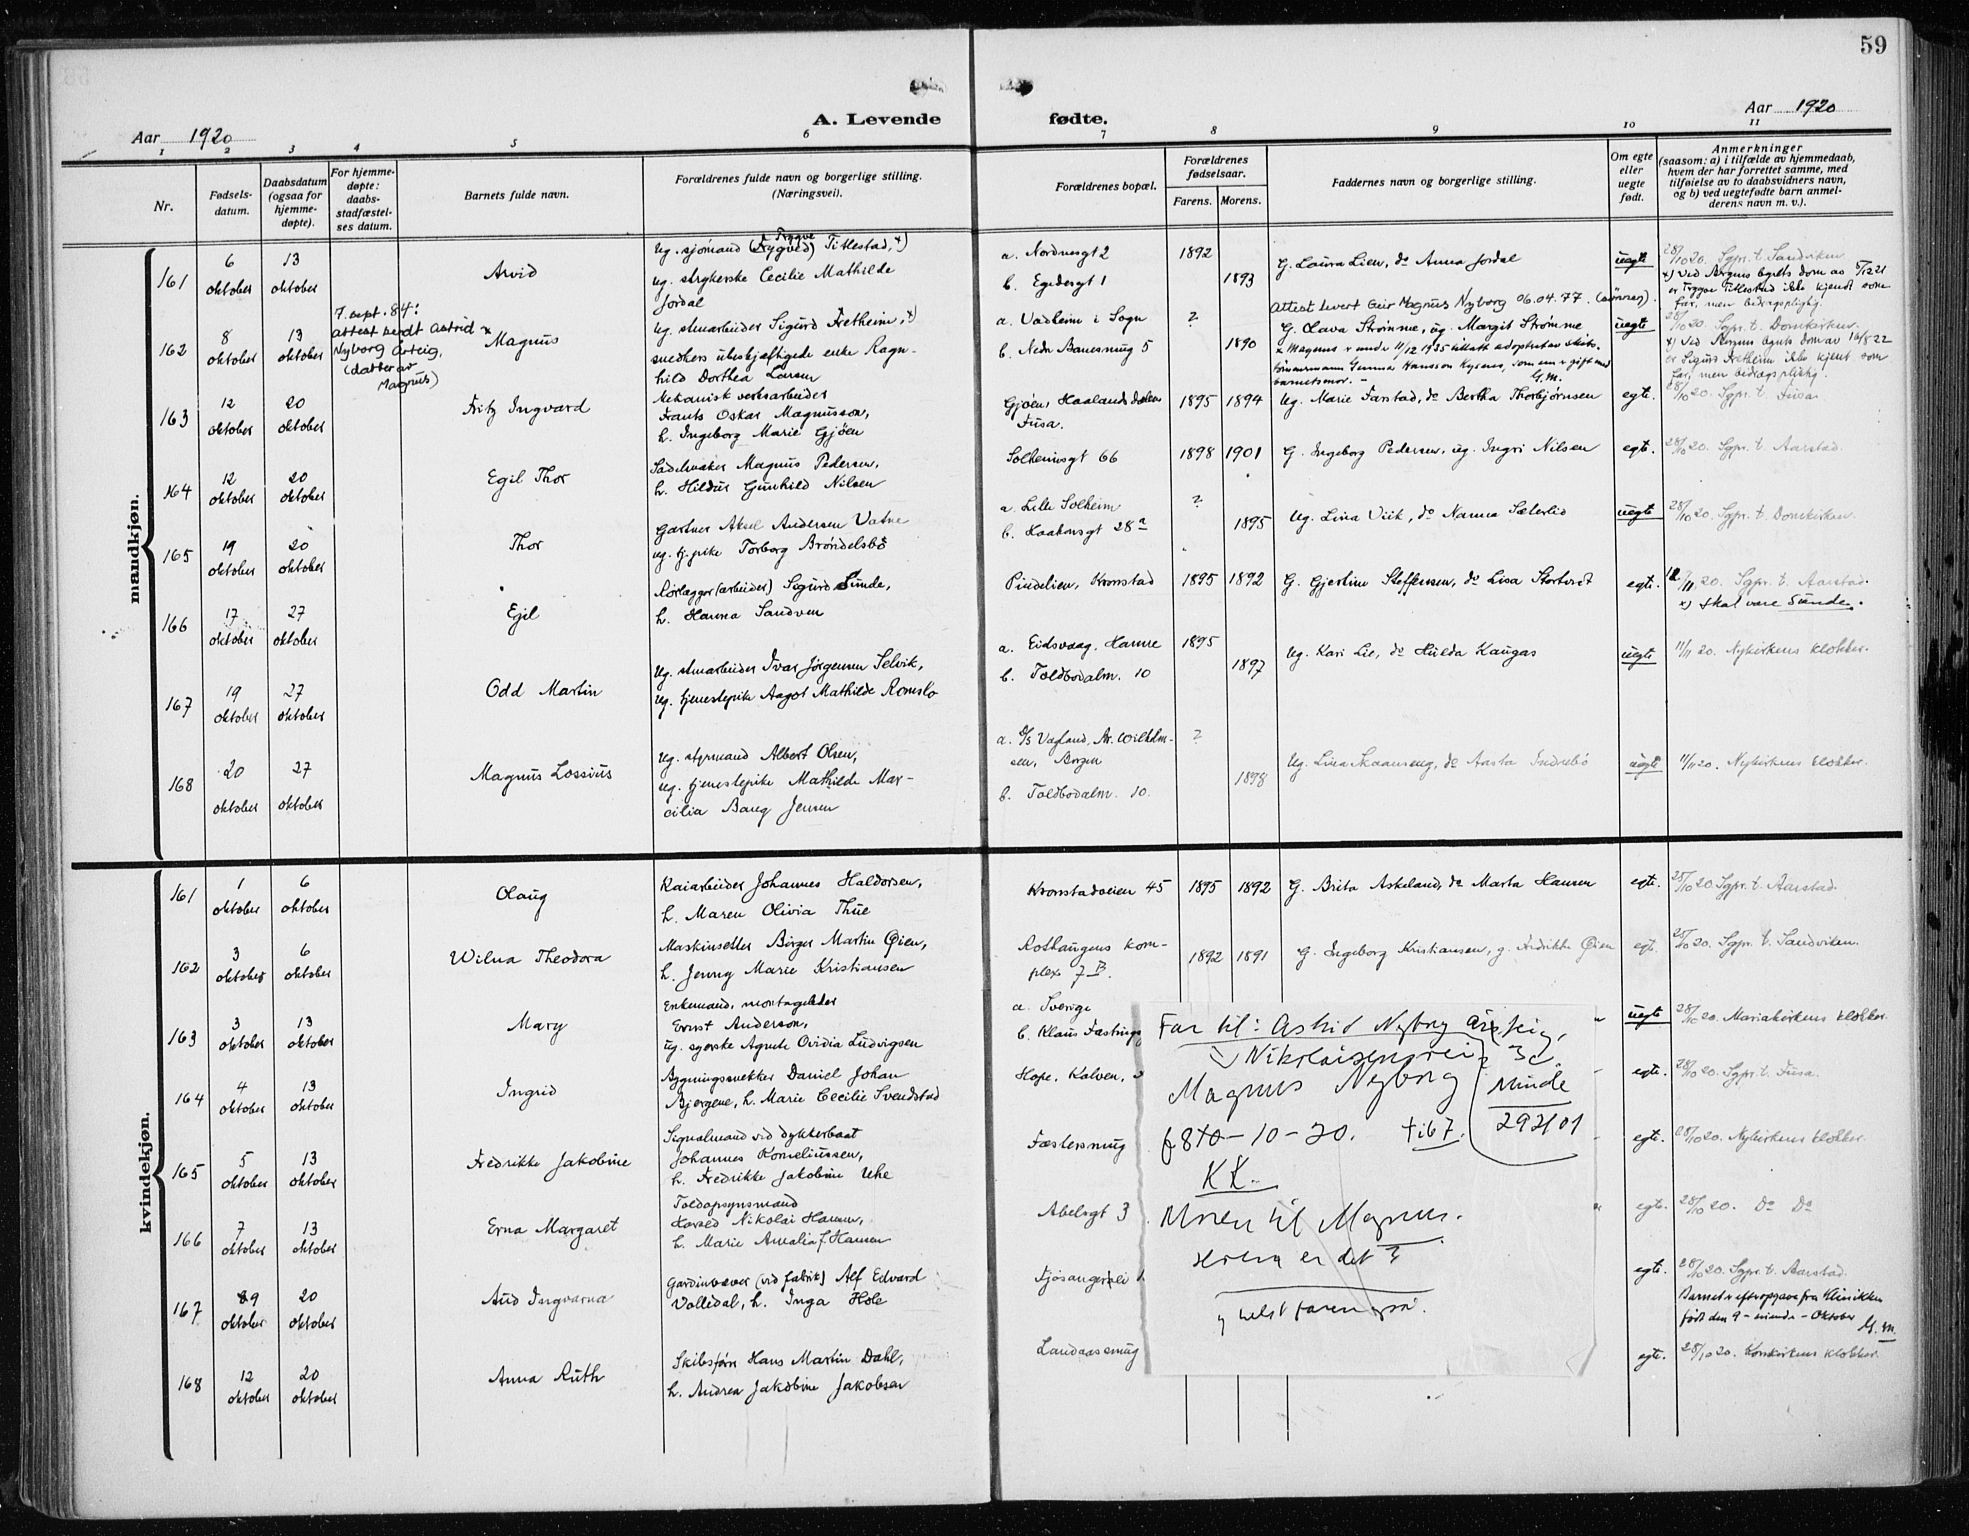 59
A. Levende fødte.
Aar 1920
Aar 1920
1 2 3 4 5 6 7 8 9 10 11
Nr.
Fødsels-
datum.
Daabsdatum
(ogsaa for
hjemme-
døpte).
For hjemme-
døpte:
daabs-
stadfæstel-
ses datum.
Barnets fulde navn.
Forældrenes fulde navn og borgerlige stilling.
(Næringsvei).
Forældrenes bopæl.
Forældrenes
fødselsaar.
Farens. Morens.
Faddernes navn og borgerlige stilling.
Om egte
eller
uegte
født.
Anmerkninger
(saasom: a) i tilfælde av hjemmedaab,
hvem der har forrettet samme, med
tilføielse av to daabsvidners navn,
og b) ved uegtefødte barn anmel-
derens navn m. v.).
mandkjøn.
161 6 oktober 13 oktober Arvid
Ug. sjømand (Trygve) Titlestad, x)
ug. strykerske Cecilie Mathilde
Jordal
a. Nordnesgt 2 1892
b. Egedesgt 1 1893
G. Laura Lien, do Anna Jordal uegte
28/10 20. Sgpr. t. Sandviken
x) Ved Bergens byrets dom av
er Trygve Titlestad ikke kjendt som
far, men bidragspligtig.
162 8 oktober 13 oktober
7. sept. 84:
attest sendt Astrid
Nyborg Årteig,
(datter av
Magnus)
Magnus
Ug. stuarbeider Sigurd Fretheim, x)
snedkers ubeskjæftigede enke Ragn-
hild Dorthea Larsen
a. Vadheim i Sogn ?
b. Nedre 5 1890
Attest levert Geir Magnus Nyborg 06.04.77. (sønnen).
G. Olava Strømme, ug. Margit Strømme uegte
x Magnus er under 11/12 1935 tillatt adoptert av
tømmermann Gunnar Hansson Kysnes, som er gift med
barnets mor. - G.M.
28/10 20. Sgpr. t. Domkirken.
x) Ved Bergens byrets dom av 16/8 22
er Sigurd Fretheim ikke kjent som
far, men bidragspligtig.
163 12 oktober 20 oktober Fritz Ingvard
Mekanisk verksarbeider
Frants Oskar Magnusson,
h. Ingeborg Marie Gjøen
Gjøen, Haalandsdalen
Fusa.
1895 1894 Ug. Marie Farstad, do Bertha Thorbjørnsen egte. 28/10 20. Sgpr. t. Fusa
164 12 oktober 20 oktober Egil Thor
Sadelmaker Magnus Pedersen,
h. Hildur Gunhild Nilsen
Solheimsgt 66 1898 1901 G. Ingeborg Pedersen, ug. Ingri Nilsen egte. 28/10 20. Sgpr. t. Aarstad.
165 19 oktober 20 oktober Thor
Gartner Aksel Andersen Vatne
ug. tj. pike Torborg Brøndelsbø
a. Lille Solheim ?
b. Haakonsgt 28a 1895
Ug. Lina Viik, do Nanna Sæterlid uegte 28/10 20. Sgpr. t. Domkirken.
166 17 oktober 27 oktober Egil
Rørlægger (arbeider) Sigurd Sunde,
h. Hanna Sandven
Pindelien, Kronstad 1895 1892 G. Gjertine Steffensen, do Lisa Stortvedt egte. 20. Sgpr. t. Aarstad.
x) skal være Sunde.
167 19 oktober 27 oktober Odd Martin
Ug. stuarbeider Ivar Jørgensen Selvik,
ug. tjenestepike Aagot Mathilde Romslo
a. Eidsvaag, Hamre 1895
b. Toldbodalm. 10 1897
Ug. Kari Lie, do Hulda Kaugas uegte 11/11 20. Nykirkens klokker.
168 20 oktober 27 oktober Magnus Lossius
Ug. styrmand Albert Olsen,
ug. tjenestepike Mathilde Mar-
cilia Bang Jensen
a. D/S Vagland, Wilhelm-
sen, Bergen ?
b. Toldbodalm. 10. 1898
Ug. Lina Skaanseng, do Aasta Indrebø uegte 11/11 20. Nykirkens klokker.
kvindekjøn.
161 1 oktober 6 oktober Olaug
Kaiarbeider Johannes Haldorsen,
h. Maren Olivia Thue
Kronstadveien 45 1895 1892 G. Brita Askeland, do Marta Hansen egte. 28/10 20 Sgpr. t. Aarstad.
162 3 oktober 6 oktober Wilma Theodora
Maskinsetter Birger Martin Øien,
h. Jenny Marie Kristiansen
Rothaugens kom-
plex 7 B.
1892 1891 G. Ingeborg Kristiansen, g. Fredrikke Øien egte. 28/10 20. Sgpr. t. Sandviken.
163 3 oktober 13 oktober Mary
Enkemand, montagelder
Ernst Anderson,
ug. syerske Agnete Ovidia Ludvigsen
a. Sverige
b. Klaus
uegte 28/10 20. Mariakirkens klokker.
164 4 oktober 13 oktober Ingrid
Bygningssnekker Daniel Johan
Bjergene, h. Marie Cecilie Svendstad
Hope, Kalven,
egte. 28/10 20. Sgpr. t. Fusa.
165 5 oktober 13 oktober Fredrikke Jakobine
Signalmand ved dykkerbaat
Johannes Korneliussen,
h. Fredrikke Jakobine Uhe
Fæstersmug
egte. 28/10 20. Nykirkens klokker.
166 7 oktober 13 oktober Erna Margaret
Toldopsynsmand
Harald Nikolai Hansen,
h. Marie Amalia f. Hansen
Abelsgt 3
egte. 28/10 20. Do Do
167 9 oktober 20 oktober Aud Ingvarna
Gardinvæver (vid fabrik) Alf Edvard
Vollidal, h. Inga Hole
Fjøsangervei 1
egte. 28/10 20. Sgpr. t. Aarstad.
Barnet er efter opgave fra Klinikken
født den 9 - niende - Oktober
G.M.
168 12 oktober 20 oktober Anna Ruth
Skibsfører Hans Martin Dahl,
h. Andrea Jakobine Jakobsen
Landaassmug
egte. 28/10 20. Korskirkens klokker.
Far til: Astrid Nyborg Årteig,
Nikolaisenvei 3c
Magnus Nyborg Minde
f 8/10-10-20. +i67. 292101
KK.
Moren til Magnus.
Hvem er det?
og helst faren også.